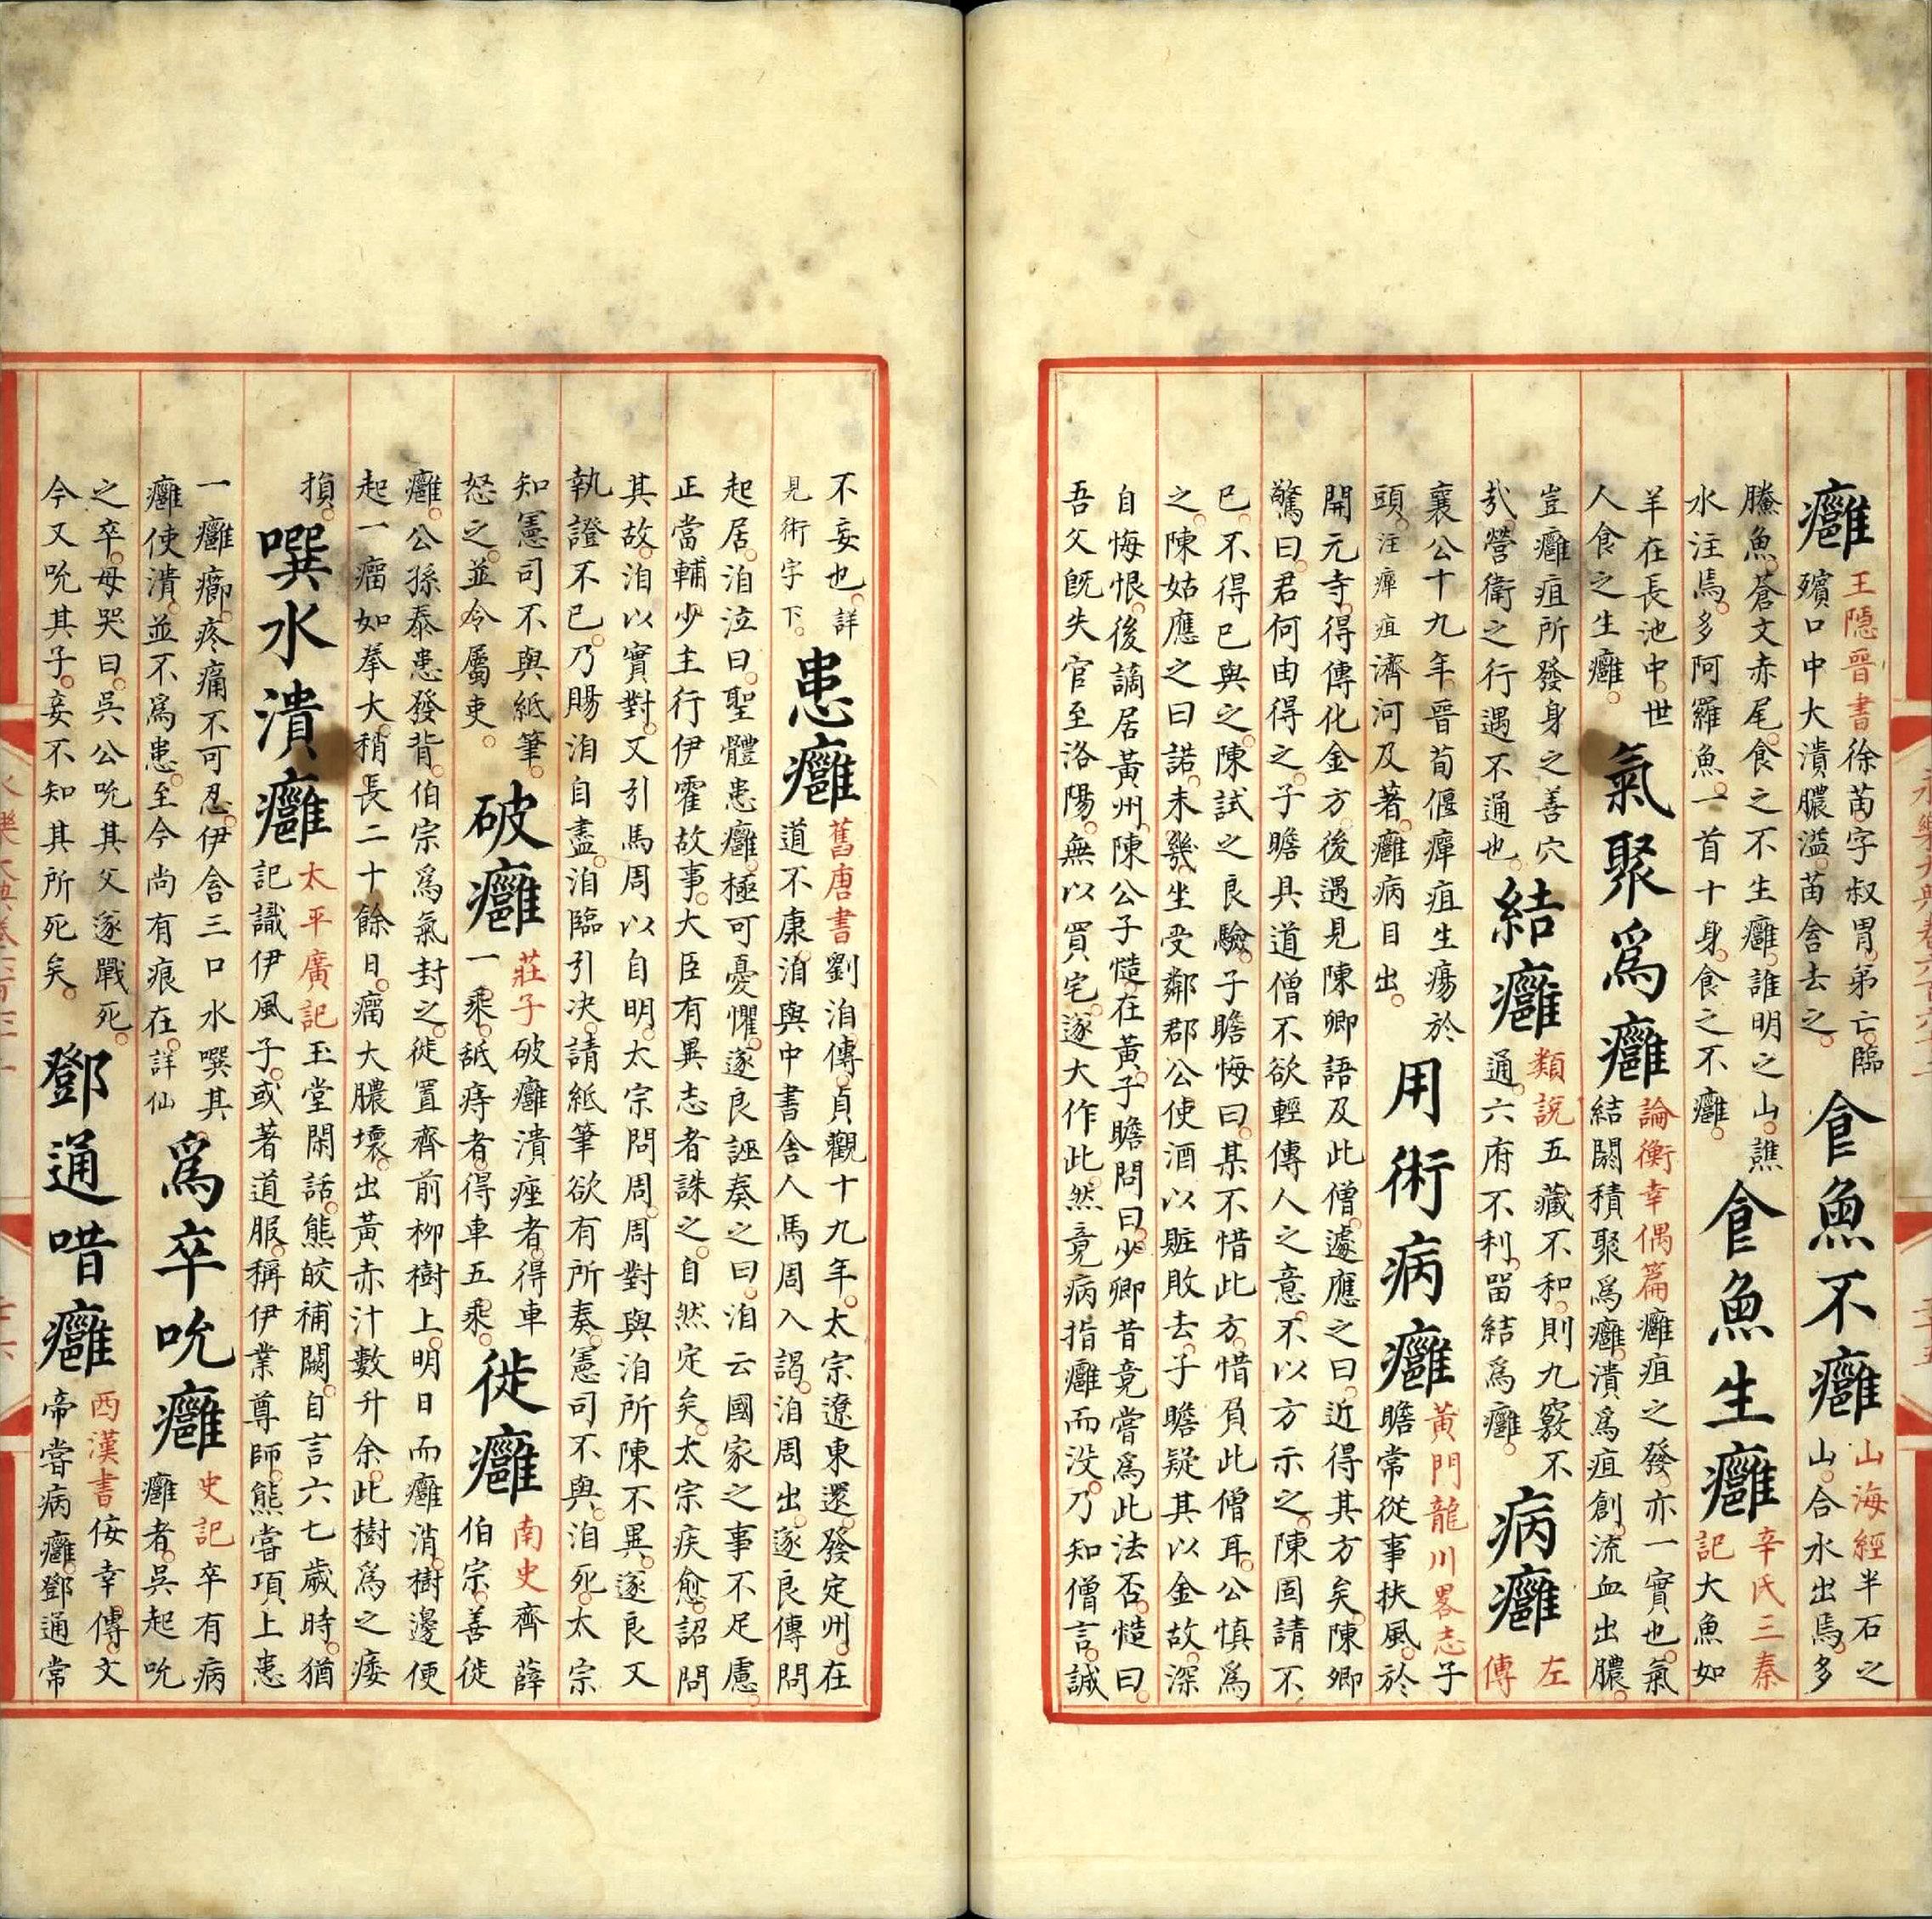 癰
王隱晉書徐苗字叔胃弟亡臨
殯口中大潰膿溢苗舍去之
食魚不癰
山海經半石之
山合水出焉多
螣魚蒼文赤尾食之不生癰誰明之山譙
水注焉多阿羅魚一首十身食之不癰
食魚生癰
辛氏三秦
記大魚如
羊在長池中世
人食之生癰
氣聚爲癰
論衡幸偶篇癰疽之發亦一實也氣
結閼積聚爲癰潰爲疽創流血出膿
豈癰疽所發身之善穴
哉營衛之行遇不通也
結癰
類說五藏不和則九竅不
通六府不利留結爲癰
病癰
左
傳
襄公十九年晉荀偃癉疽生瘍於
頭注癉疽濟河及著癰病目出
用術病癰
黃門龍川畧志子
瞻常從事扶風於
開元寺得傳化金方後遇見陳卿語及此僧遽應之曰近得其方矣陳卿
驚曰君何由得之子瞻具道僧不欲輕傳人之意不以方示之陳固請不
已不得已與之陳試之良驗子瞻悔曰某不惜此方惜負此僧耳公慎爲
之陳姑應之曰諾未幾坐受鄰郡公使酒以賍敗去子瞻疑其以金故深
自悔恨後謫居黃州陳公子慥在黃子瞻問曰少卿昔竟嘗爲此法否慥曰
吾父旣失官至洛陽無以買宅遂大作此然竟病指癰而没乃知僧言誠
不妄也詳
見術字下
患癰
舊唐書劉洎傳貞觀十九年太宗遼東還發定州在
道不康洎與中書舍人馬周入謁洎周出遂良傳問
起居洎泣曰聖體患癰極可憂懼遂良誣奏之曰洎云國家之事不足慮
正當輔少主行伊霍故事大臣有異志者誅之自然定矣太宗疾愈詔問
其故洎以實對又引馬周以自明太宗問周周對與洎所陳不異遂良又
執證不已乃賜洎自盡洎臨引決請紙筆欲有所奏憲司不與洎死太宗
知憲司不與紙筆
怒之並令屬吏
破癰
莊子破癰潰痤者得車
一乘舐痔者得車五乘
徙癰
南史齊薛
伯宗善徙
癰公孫泰患發背伯宗爲氣封之徙置齊前柳樹上明日而癰消樹邊便
起一瘤如拳大稍長二十餘日瘤大膿壞出黃赤汁數升余此樹爲之痿
損
噀水潰癰
太平廣記玉堂閑話熊皎補闕自言六七歲時猶
記識伊風子或著道服稱伊業尊師熊嘗項上患
一癰癤疼痛不可忍伊舍三口水噀其
癰使潰並不爲患至今尚有痕在詳仙
爲卒吮癰
史記卒有病
癰者吳起吮
之卒母哭曰吳公吮其父遂戰死
今又吮其子妾不知其所死矣
鄧通唶癰
西漢書佞幸傳文
帝嘗病癰鄧通常